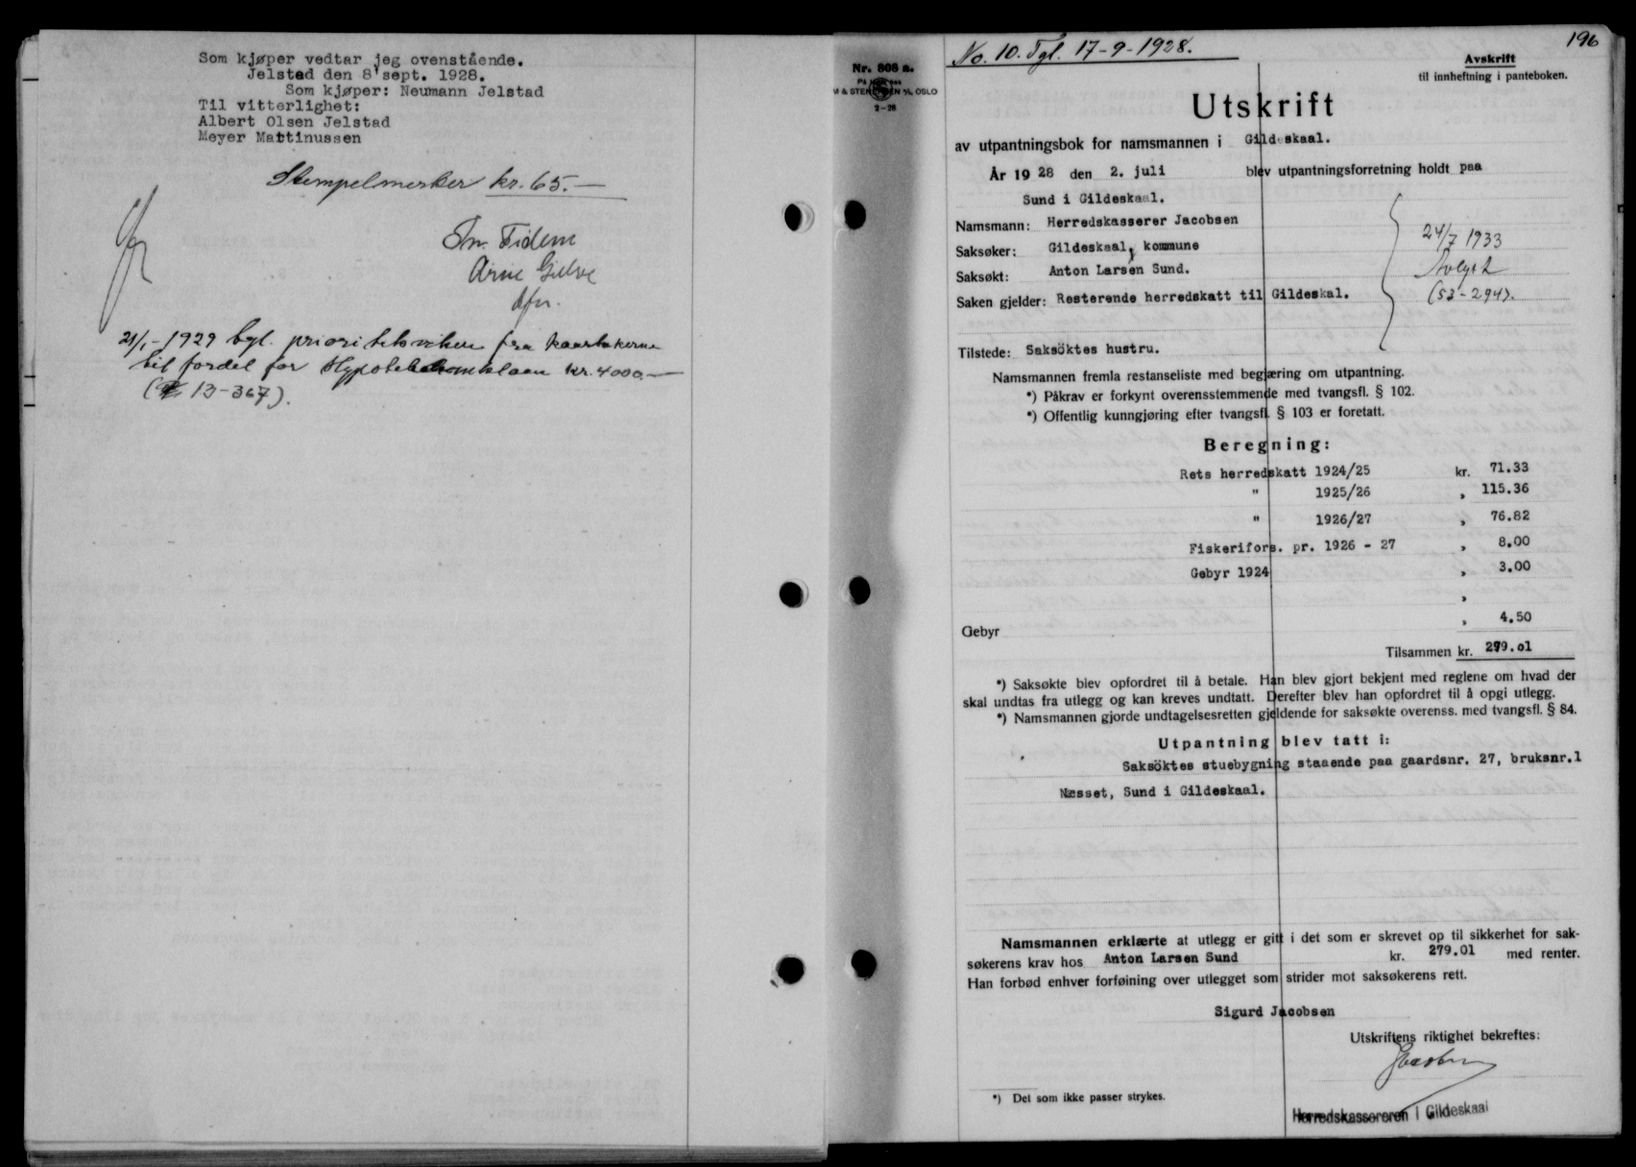 Som kjøper vedtar jeg ovenstående.
Jelstad den 8 sept. 1928.
Som kjøper: Neumann Jelstad
Til vitterlighet:
Albert Olsen Jelstad
Meyer Mattinussen
Stempelmerker kr. 65.—
In Fidem
Arne
dfn.
21/1-1929 tgl. prioritetsvikn fra kaartakerne
til fordel for kr. 4000.—
(13-367).
No. 10. Tgl. 17-9-1928.
196
Nr. 808 a.
OSLO
2-28
Avskrift
til innheftning i panteboken.
Utskrift
av utpantningsbok for namsmannen i Gildeskaal.
År 1928 den 2. juli blev utpantningsforretning holdt paa
Sund i Gildeskaal.
Namsmann: Herredskasserer Jacobsen
Saksøker: Gildeskaal kommune
Saksøkt: Anton Larsen Sund.
Saken gjelder: Resterende herredskatt til Gildeskal.
24/7 1933
Avlyst
(53-294).
Tilstede: Saksöktes hustru.
Namsmannen fremla restanseliste med begjæring om utpantning.
*) Påkrav er forkynt overensstemmende med tvangsfl. § 102.
*) Offentlig kunngjøring efter tvangsfl. § 103 er foretatt.
Beregning:
Rets herredskatt 1924/25 kr. 71.33
" 1925/26 „ 115.36
" 1926/27 „ 76.82
Fiskerifors. pr. 1926 - 27 „ 8.00
Gebyr 1924 „ 3.00
„
Gebyr „ 4.50
Tilsammen kr. 279.01
*) Saksøkte blev opfordret til å betale. Han blev gjort bekjent med reglene om hvad der
skal undtas fra utlegg og kan kreves undtatt. Derefter blev han opfordret til å opgi utlegg.
*) Namsmannen gjorde undtagelsesretten gjeldende for saksøkte overenss. med tvangsfl. § 84.
Utpantning blev tatt i:
Saksöktes stuebygning staaende paa gaardsnr. 27, bruksnr.1
Næsset, Sund i Gildeskaal.
Namsmannen erklærte at utlegg er gitt i det som er skrevet op til sikkerhet for sak-
søkerens krav hos Anton Larsen Sund kr. 279.01 med renter.
Han forbød enhver forføining over utlegget som strider mot saksøkerens rett.
Sigurd Jacobsen
Utskriftens riktighet bekreftes:
*) Det som ikke passer strykes.
Herredskassereren i Gildeskaal